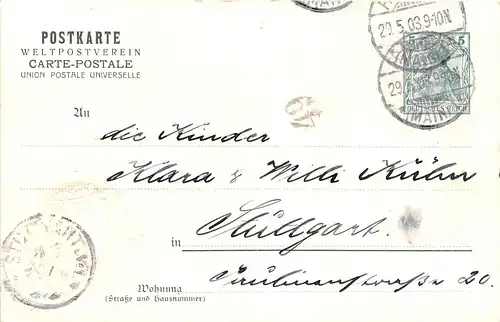 POSTKARTE
WELTPOSTVEREIN
CARTE-POSTALE
UNION POSTALE UNIVERSELLE
29.5.03.9-10N.
(MAIN)
5
29.
DEUTSCHES REICH
(MAIN)
An
49
die Kinder
Klara & Willi Kühn
in Stuttgart.
Paulinenstraße 20.
Wohnung
(Straße und Hausnummer)